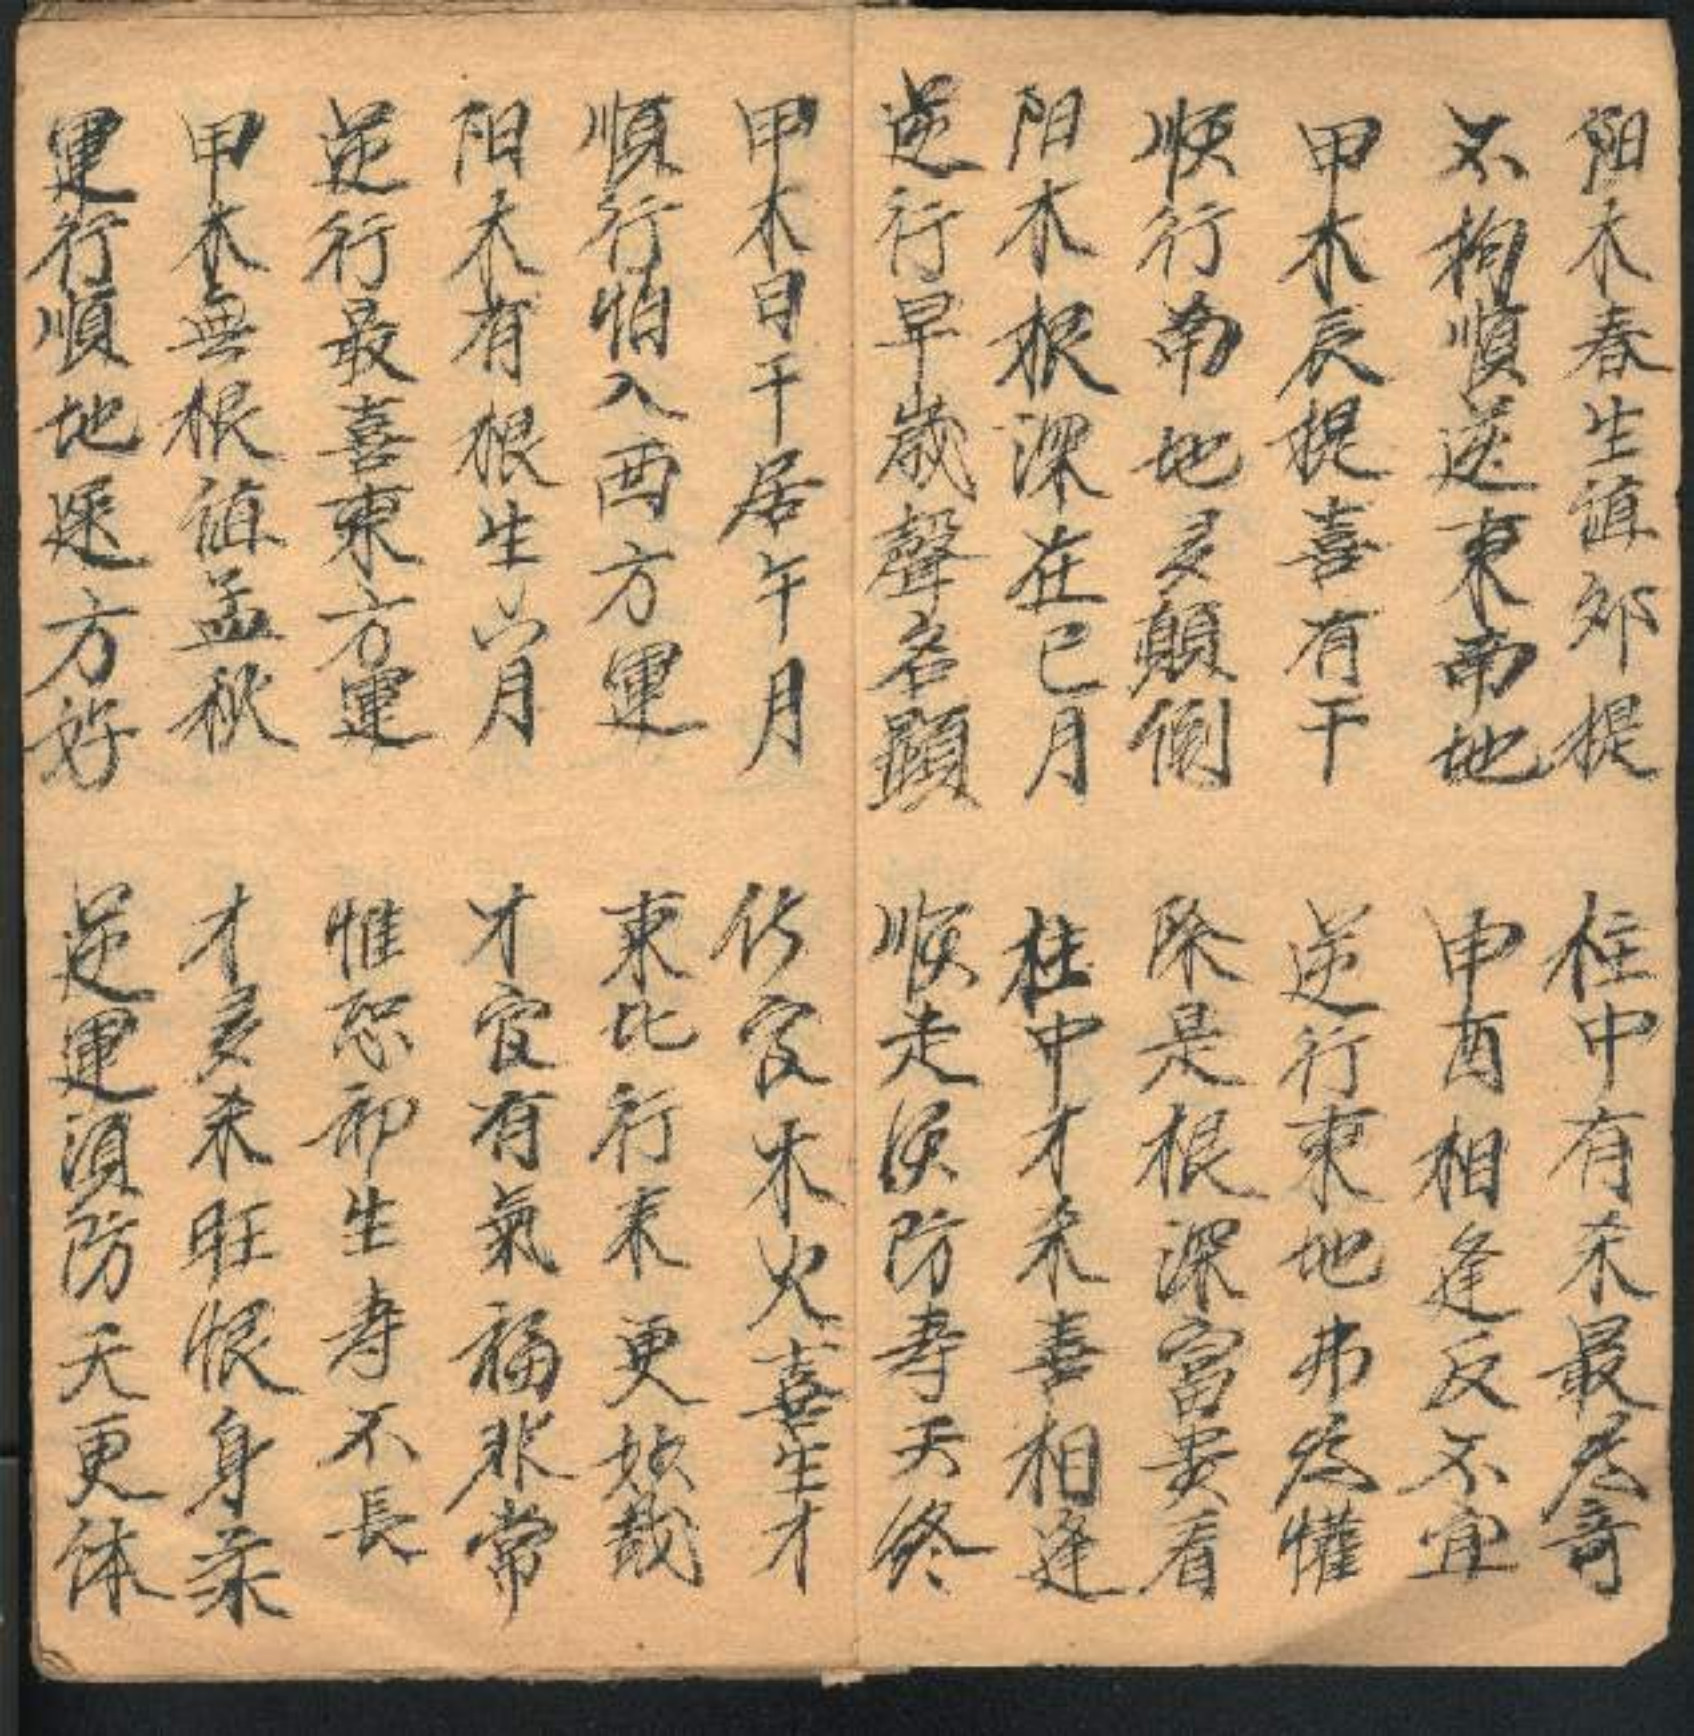 阳木春生值卯提
柱中有杀最為奇
不拘順逆東南地
申酉相逢反不宜
甲木辰提喜有干
逆行東地弗為懽
順行南地多顛倒
除是根深富貴看
阳木根深在巳月
柱中才杀喜相逢
逆行早歲聲名顯
順走須防寿夭終
甲木日干居午月
木火喜生才
順行怕入西方運
東北行来更妙哉
阳木有根生六月
才官有氣福非常
逆行最喜東方運
惟恐卯生寿不長
甲木無根值孟秋
才多杀旺恨身柔
運行順地逐方好
逆運須防夭更体